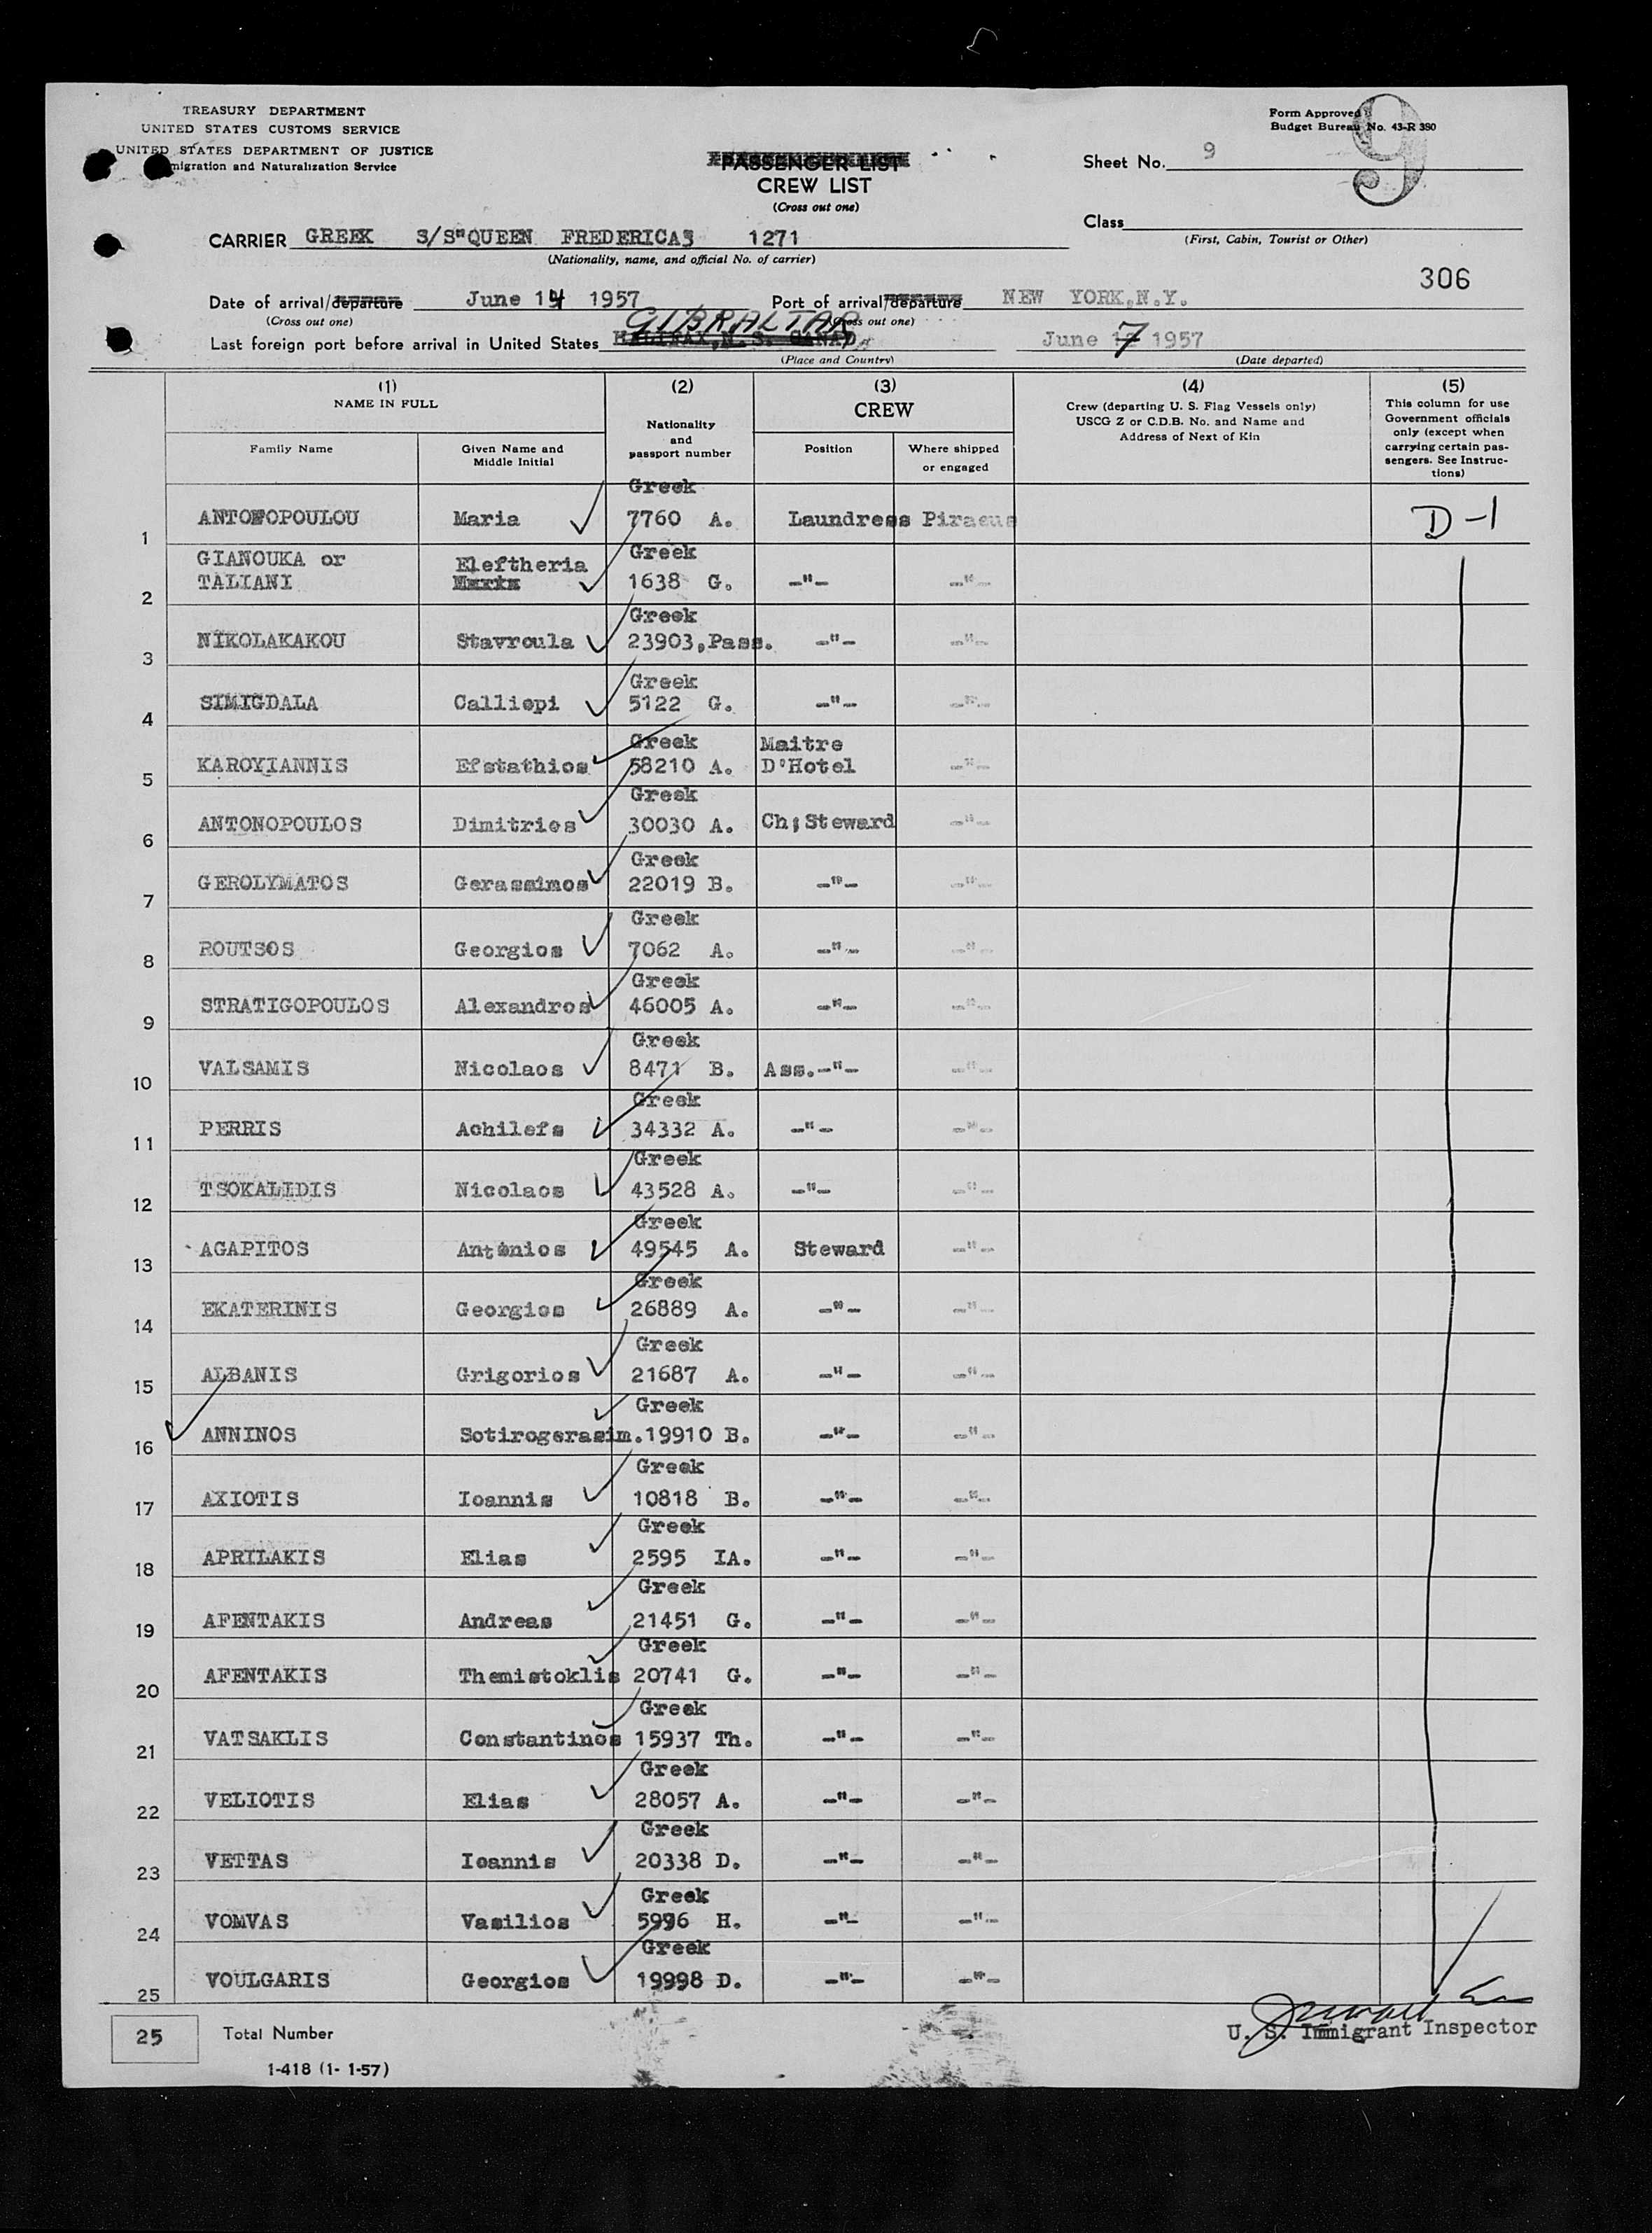 TREASURY DEPARTMENT
UNITED STATES CUSTOMS SERVICE
UNITED STATES DEPARTMENT OF JUSTICE
migration and Naturalization Service
Form Approved
Budget Bureau No. 43-R 380
9
PASSENGER LIST
CREW LIST
(Cross out one)
Sheet No. 9
Class
(First, Cabin, Tourist or Other)
CARRIER GREEK S/S"QUEEN FREDERICA" 1271
(Nationality, name, and official No. of carrier)
306
Date of arrival/departure June 14 1957 Port of arrival/departure NEW YORK,N.Y.
(Cross out one) (Cross out one)
GIBRALTAR
Last foreign port before arrival in United States HALIFAX,N.S. CANADA June 7 1957
(Place and Country) (Date departed)
(1) (2) (3) (4) (5)
NAME IN FULL Nationality and passport number CREW Crew (departing U. S. Flag Vessels only) USCG Z or C.D.B. No. and Name and Address of Next of Kin This column for use Government officials only (except when carrying certain passengers. See Instructions)
Family Name Given Name and Middle Initial Position Where shipped or engaged
Greek
1 ANTONOPOULOU Maria 7760 A. Laundress Piraeus D-1
GIANOUKA or Eleftheria Greek
2 TALIANI Maria 1638 G. -"- -"-
Greek
3 NIKOLAKAKOU Stavroula 23903,Pass. -"- -"-
Greek
4 SIMIGDALA Calliopi 5122 G. -"- -"-
Greek Maitre
5 KAROYIANNIS Efstathios 58210 A. D'Hotel -"-
Greek
6 ANTONOPOULOS Dimitrios 30030 A. Ch;Steward -"-
Greek
7 GEROLYMATOS Gerassimos 22019 B. -"- -"-
Greek
8 ROUTSOS Georgios 7062 A. -"- -"-
Greek
9 STRATIGOPOULOS Alexandros 46005 A. -"- -"-
Greek
10 VALSAMIS Nicolaos 8471 B. Ass.-"- -"-
Greek
11 PERRIS Achilefs 34332 A. -"- -"-
Greek
12 TSOKALIDIS Nicolaos 43528 A. -"- -"-
Greek
13 AGAPITOS Antonios 49545 A. Steward -"-
Greek
14 EKATERINIS Georgios 26889 A. -"- -"-
Greek
15 ALBANIS Grigorios 21687 A. -"- -"-
Greek
16 ANNINOS Sotirogerasim. 19910 B. -"- -"-
Greek
17 AXIOTIS Ioannis 10818 B. -"- -"-
Greek
18 APRILAKIS Elias 2595 IA. -"- -"-
Greek
19 AFENTAKIS Andreas 21451 G. -"- -"-
Greek
20 AFENTAKIS Themistoklis 20741 G. -"- -"-
Greek
21 VATSAKLIS Constantinos 15937 Th. -"- -"-
Greek
22 VELIOTIS Elias 28057 A. -"- -"-
Greek
23 VETTAS Ioannis 20338 D. -"- -"-
Greek
24 VOMVAS Vasilios 5996 H. -"- -"-
Greek
25 VOULGARIS Georgios 19998 D. -"- -"-
25 Total Number
U. S. Immigrant Inspector
1-418 (1- 1-57)